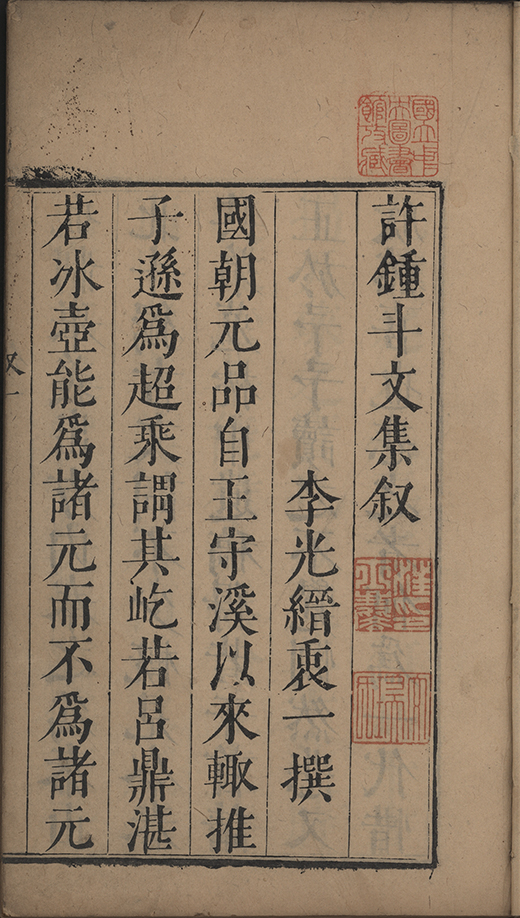 國立中央圖書館收藏
許鍾斗文集叙
李光縉衷一撰
國朝元品自王守溪以來輙推
子遜爲超乘謂其屹若呂鼎湛
若冰壺能爲諸元而不爲諸元